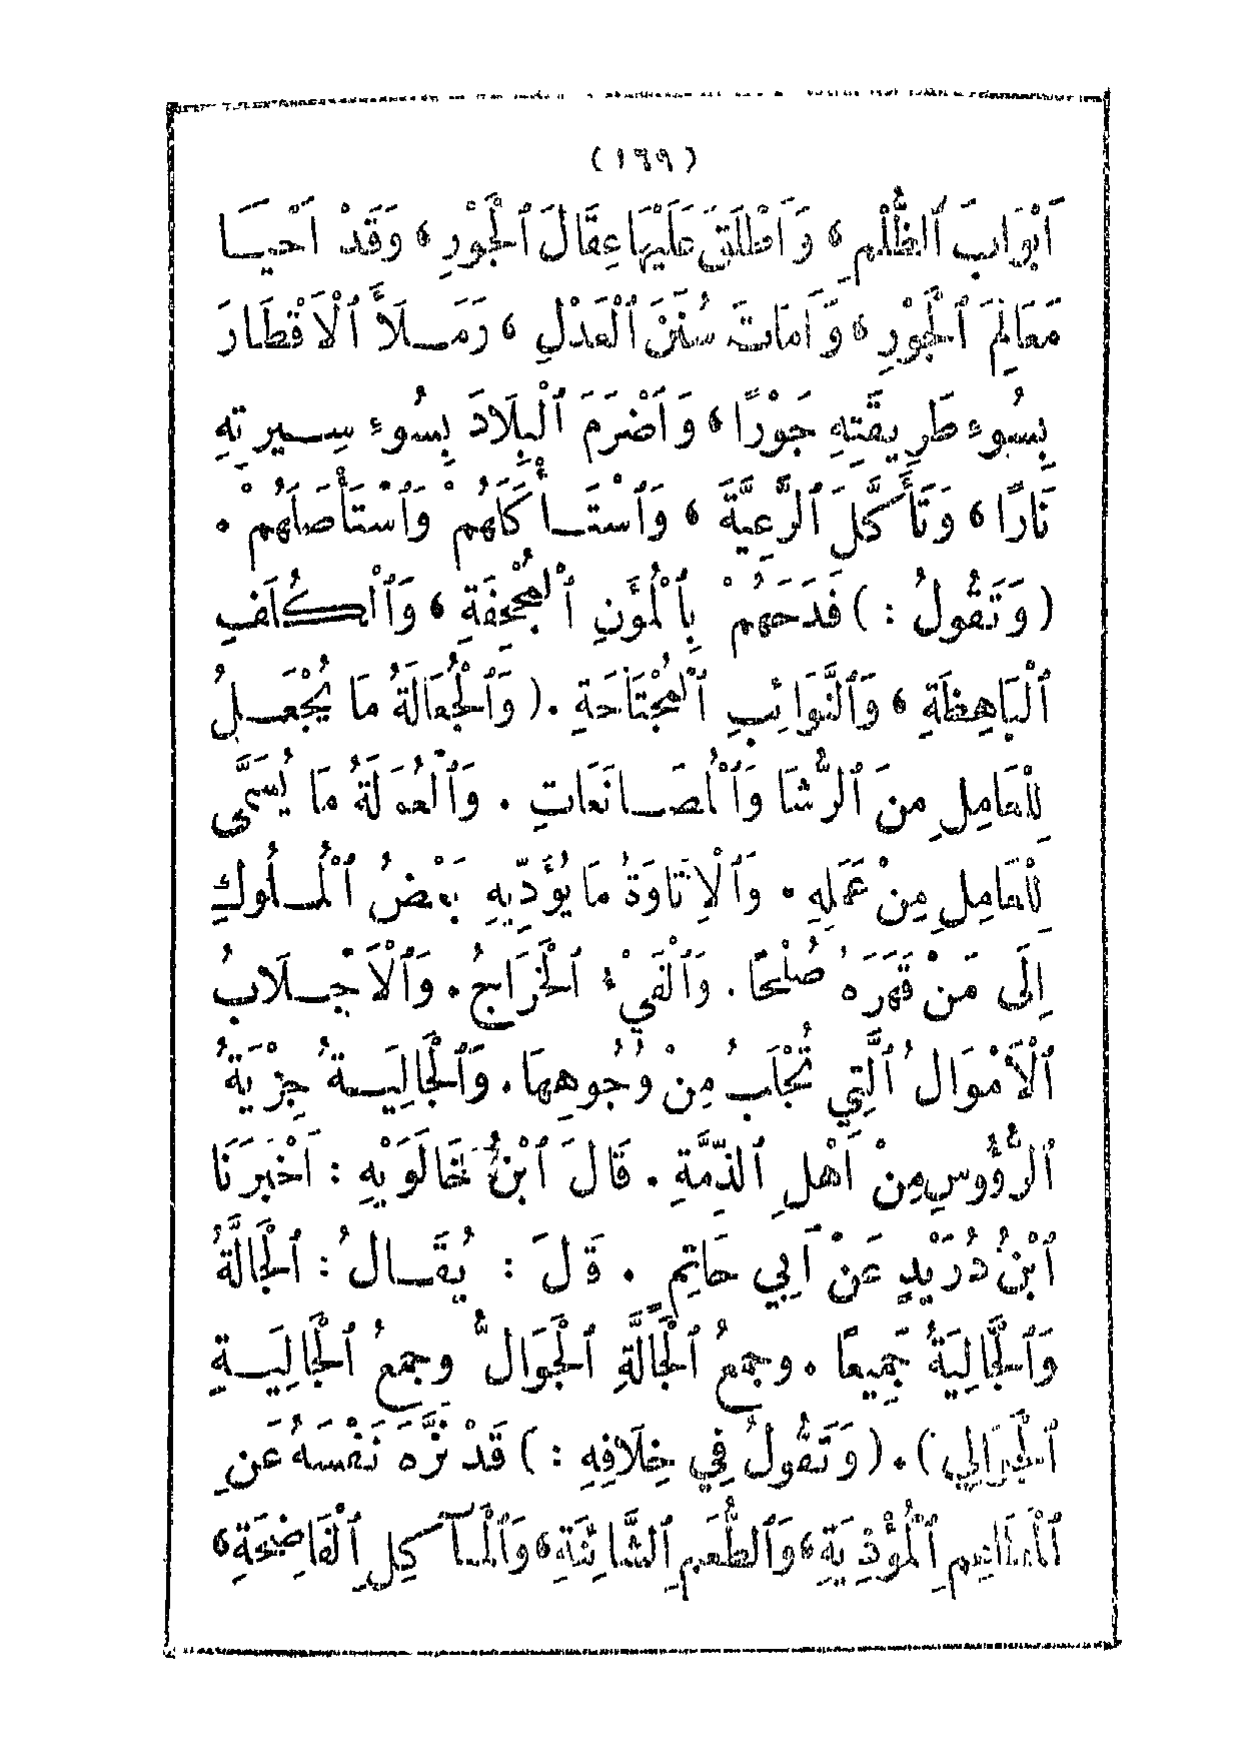 (١٦٩)
أَبْوَابَ ٱلظُّلْمِ، وَأَطْلَقَ عَلَيْهَا عِقَالَ ٱلْجَوْرِ، وَقَدْ أَحْيَــا
مَعَالِمَ ٱلْجَوْرِ، وَأَمَاتَ سُنَنَ ٱلْعَدْلِ، وَمَــلَأَ ٱلْأَقْطَارَ
بِسُوءِ طَرِيقَتِهِ جَوْرًا، وَأَضْرَمَ ٱلْبِلَادَ بِسُوءِ سِــيرَتِهِ
نَارًا، وَتَأَكَّلَ ٱلرَّعِيَّةَ، وَٱسْتَــأْكَلَهُمْ وَٱسْتَأْصَلَهُمْ.
(وَتَقُولُ:) فَدَحَهُمْ بِٱلْمُؤَنِ ٱلْمُجْحِفَةِ، وَٱلْكُلَفِ
ٱلْبَاهِظَةِ، وَٱلنَّوَائِبِ ٱلْمُجْتَاحَةِ. (وَٱلْجُعَالَةُ مَا يُجْعَــلُ
لِلْعَامِلِ مِنَ ٱلرُّشَا وَٱلْمُصَــانَعَاتِ. وَٱلْعُمَلَةُ مَا يُسَمَّى
لِلْعَامِلِ مِنْ عَمَلِهِ. وَٱلْإِتَاوَةُ مَا يُؤَدِّيهِ بَعْضُ ٱلْمُــلُوكِ
إِلَى مَنْ قَهَرَهُ صُلْحًا. وَٱلْفَيْءُ ٱلْخَرَاجُ. وَٱلْأَجْــلَابُ
ٱلْأَمْوَالُ ٱلَّتِي تُجْلَبُ مِنْ وُجُوهِهَا. وَٱلْجَالِيَــةُ جِزْيَةُ
ٱلرُّؤُوسِ مِنْ أَهْلِ ٱلذِّمَّةِ. قَالَ ٱبْنُ خَالَوَيْهِ: أَخْبَرَنَا
ٱبْنُ دُرَيْدٍ عَنْ أَبِي حَاتِمٍ. قَلَ: يُقَــالُ: ٱلْجَالَّةُ
وَٱلْجَالِيَةُ جَمِيعًا. وجمعُ ٱلْجَالَّةِ ٱلْجَوَالُّ وجمعُ ٱلْجَالِيَــةِ
ٱلْجَوَالِي). (وَتَقُولُ فِي خِلَافِهِ:) قَدْ نَزَّهَ نَفْسَهُ عَنِ
ٱلْمَطَاعِمِ ٱلْمُؤْذِيَةِ، وَٱلطُّعَمِ ٱلشَّائِنَةِ، وَٱلْمَآكِلِ ٱلْفَاضِحَةِ،